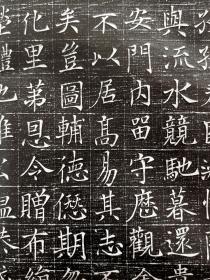 與流水競馳暮還
安門內留守歷觀
不以居高易其志
矣豈圖輔德愆期
化里第恩令贈布
禮也惟公溫恭